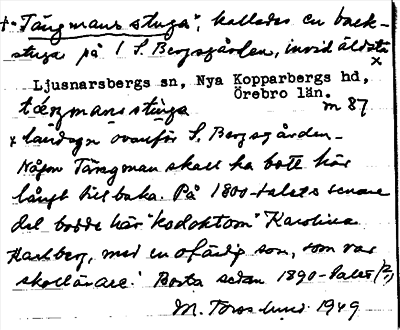 †"Tängmans stuga", kallades en back-
stuga på 1 S. Bergsgården, invid äldsta
x
Ljusnarsbergs sn, Nya Kopparbergs hd,
Örebro län.
m 87
tängmans stuga
x landsvgn ovanför S. Bergsgården.
Någon Tängman skall ha bott här
långt tillbaka. På 1800-talets senare
del bodde här "kodoktorn" Karolina
Karlberg, med en ofärdig son, som var
skollärare. Borta sedan 1890-talet (?)
M. Toroslund 1949